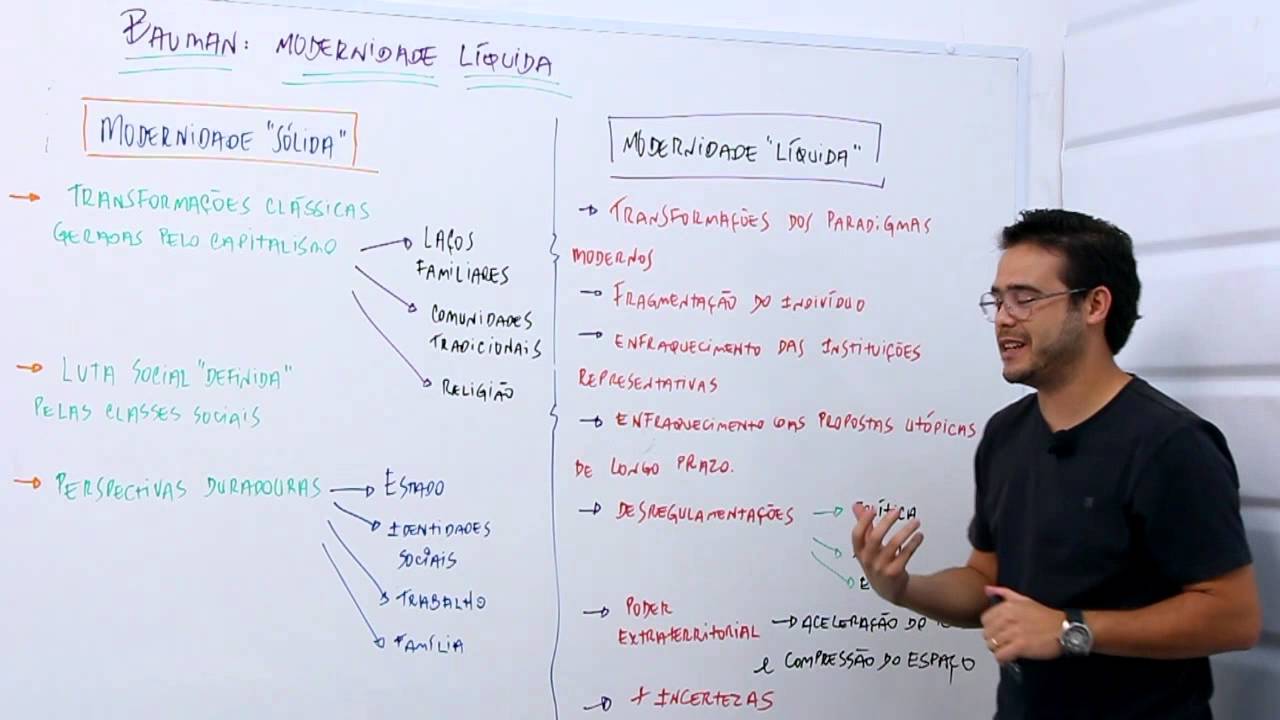 BAUMAN: MODERNIDADE LÍQUIDA
MODERNIDADE "SÓLIDA"
→ TRANSFORMAÇÕES CLÁSSICAS
GERADAS PELO CAPITALISMO
→ LAÇOS
FAMILIARES
→ COMUNIDADES
TRADICIONAIS
→ RELIGIÃO
→ LUTA SOCIAL "DEFINIDA"
PELAS CLASSES SOCIAIS
→ PERSPECTIVAS DURADOURAS → ESTADO
→ IDENTIDADES
SOCIAIS
→ TRABALHO
→ FAMÍLIA
MODERNIDADE "LÍQUIDA"
→ TRANSFORMAÇÕES DOS PARADIGMAS
MODERNOS
→ FRAGMENTAÇÃO DO INDIVÍDUO
→ ENFRAQUECIMENTO DAS INSTITUIÇÕES
REPRESENTATIVAS
→ ENFRAQUECIMENTO DAS PROPOSTAS UTÓPICAS
DE LONGO PRAZO.
→ DESREGULAMENTAÇÕES → POLÍTICA
→ PODER
EXTRATERRITORIAL → ACELERAÇÃO DO
E COMPRESSÃO DO ESPAÇO
→ + INCERTEZAS